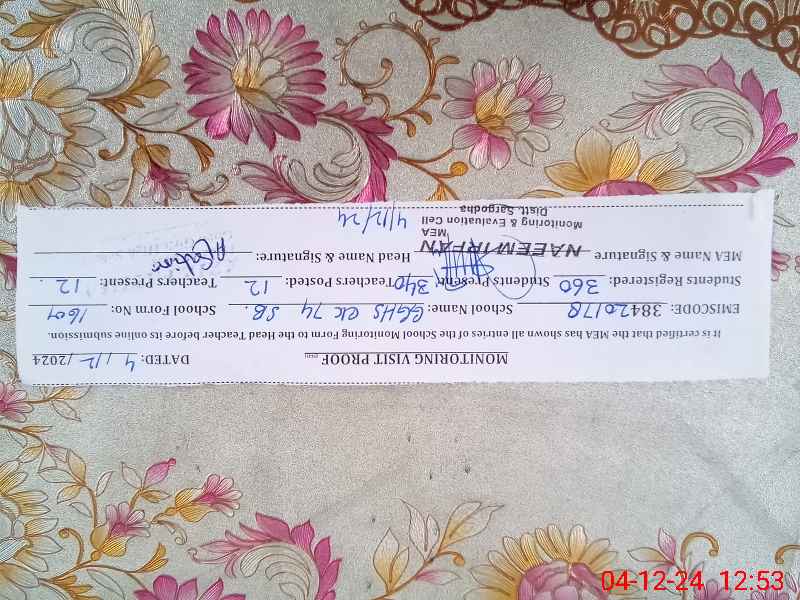 MONITORING VISIT PROOF DATED: 4/12/2024
It is certified that the MEA has shown all entries of the School Monitoring Form to the Head Teacher before its online submission.
EMISCODE: 38420178 School Name: GGHS CK 74 SB. School Form No: 1609
Students Registered: 360 Students Present: 340 Teachers Posted: 12 Teachers Present: 12
MEA Name & Signature NAEEM IRFAN Head Name & Signature:
MEA
Monitoring & Evaluation Cell
Distt. Sargodha
4/12/24
04-12-24 12:53